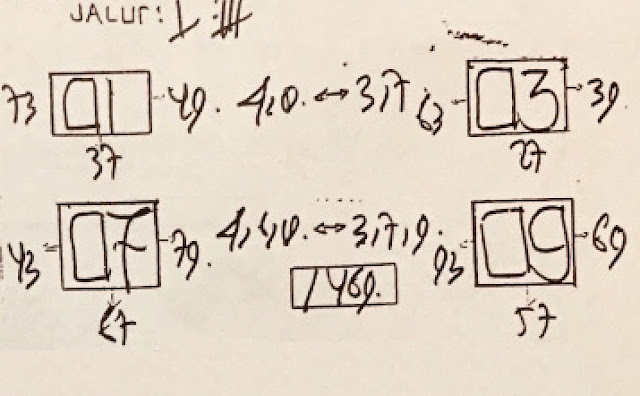 JALUR: I - III
73 01 49. 4,0. ↔ 3,7 63 03 39.
37 27
43 07 79. 4,4,0. ↔ 3,7,9. 93 09 69
57
1469.